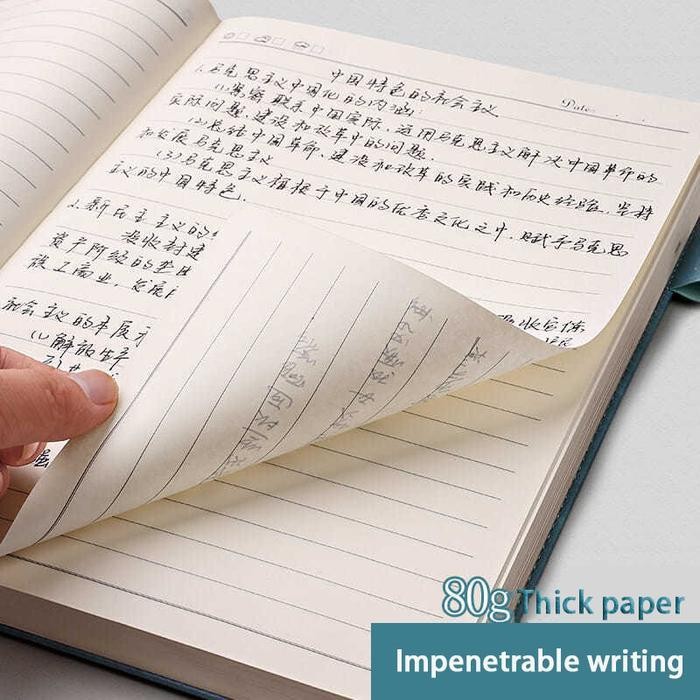 Date:
中国特色的社会主义
1.马克思主义中国化的内涵:
(1)紧密联系中国实际,运用马克思主义解决中国革命的
实际问题,建设和改革中的问题.
(2)总结中国革命,建设和改革的实践和历史经验,坚持
和发展马克思主义
(3)马克思主义植根于中国的优秀文化之中,赋予马克思
主义的中国特色.
2.新民主主义的
没收封建
资产阶级的垄
族工商业,发展
没收官僚
民
社会主义的本质
(1)解放生产
80g Thick paper
Impenetrable writing